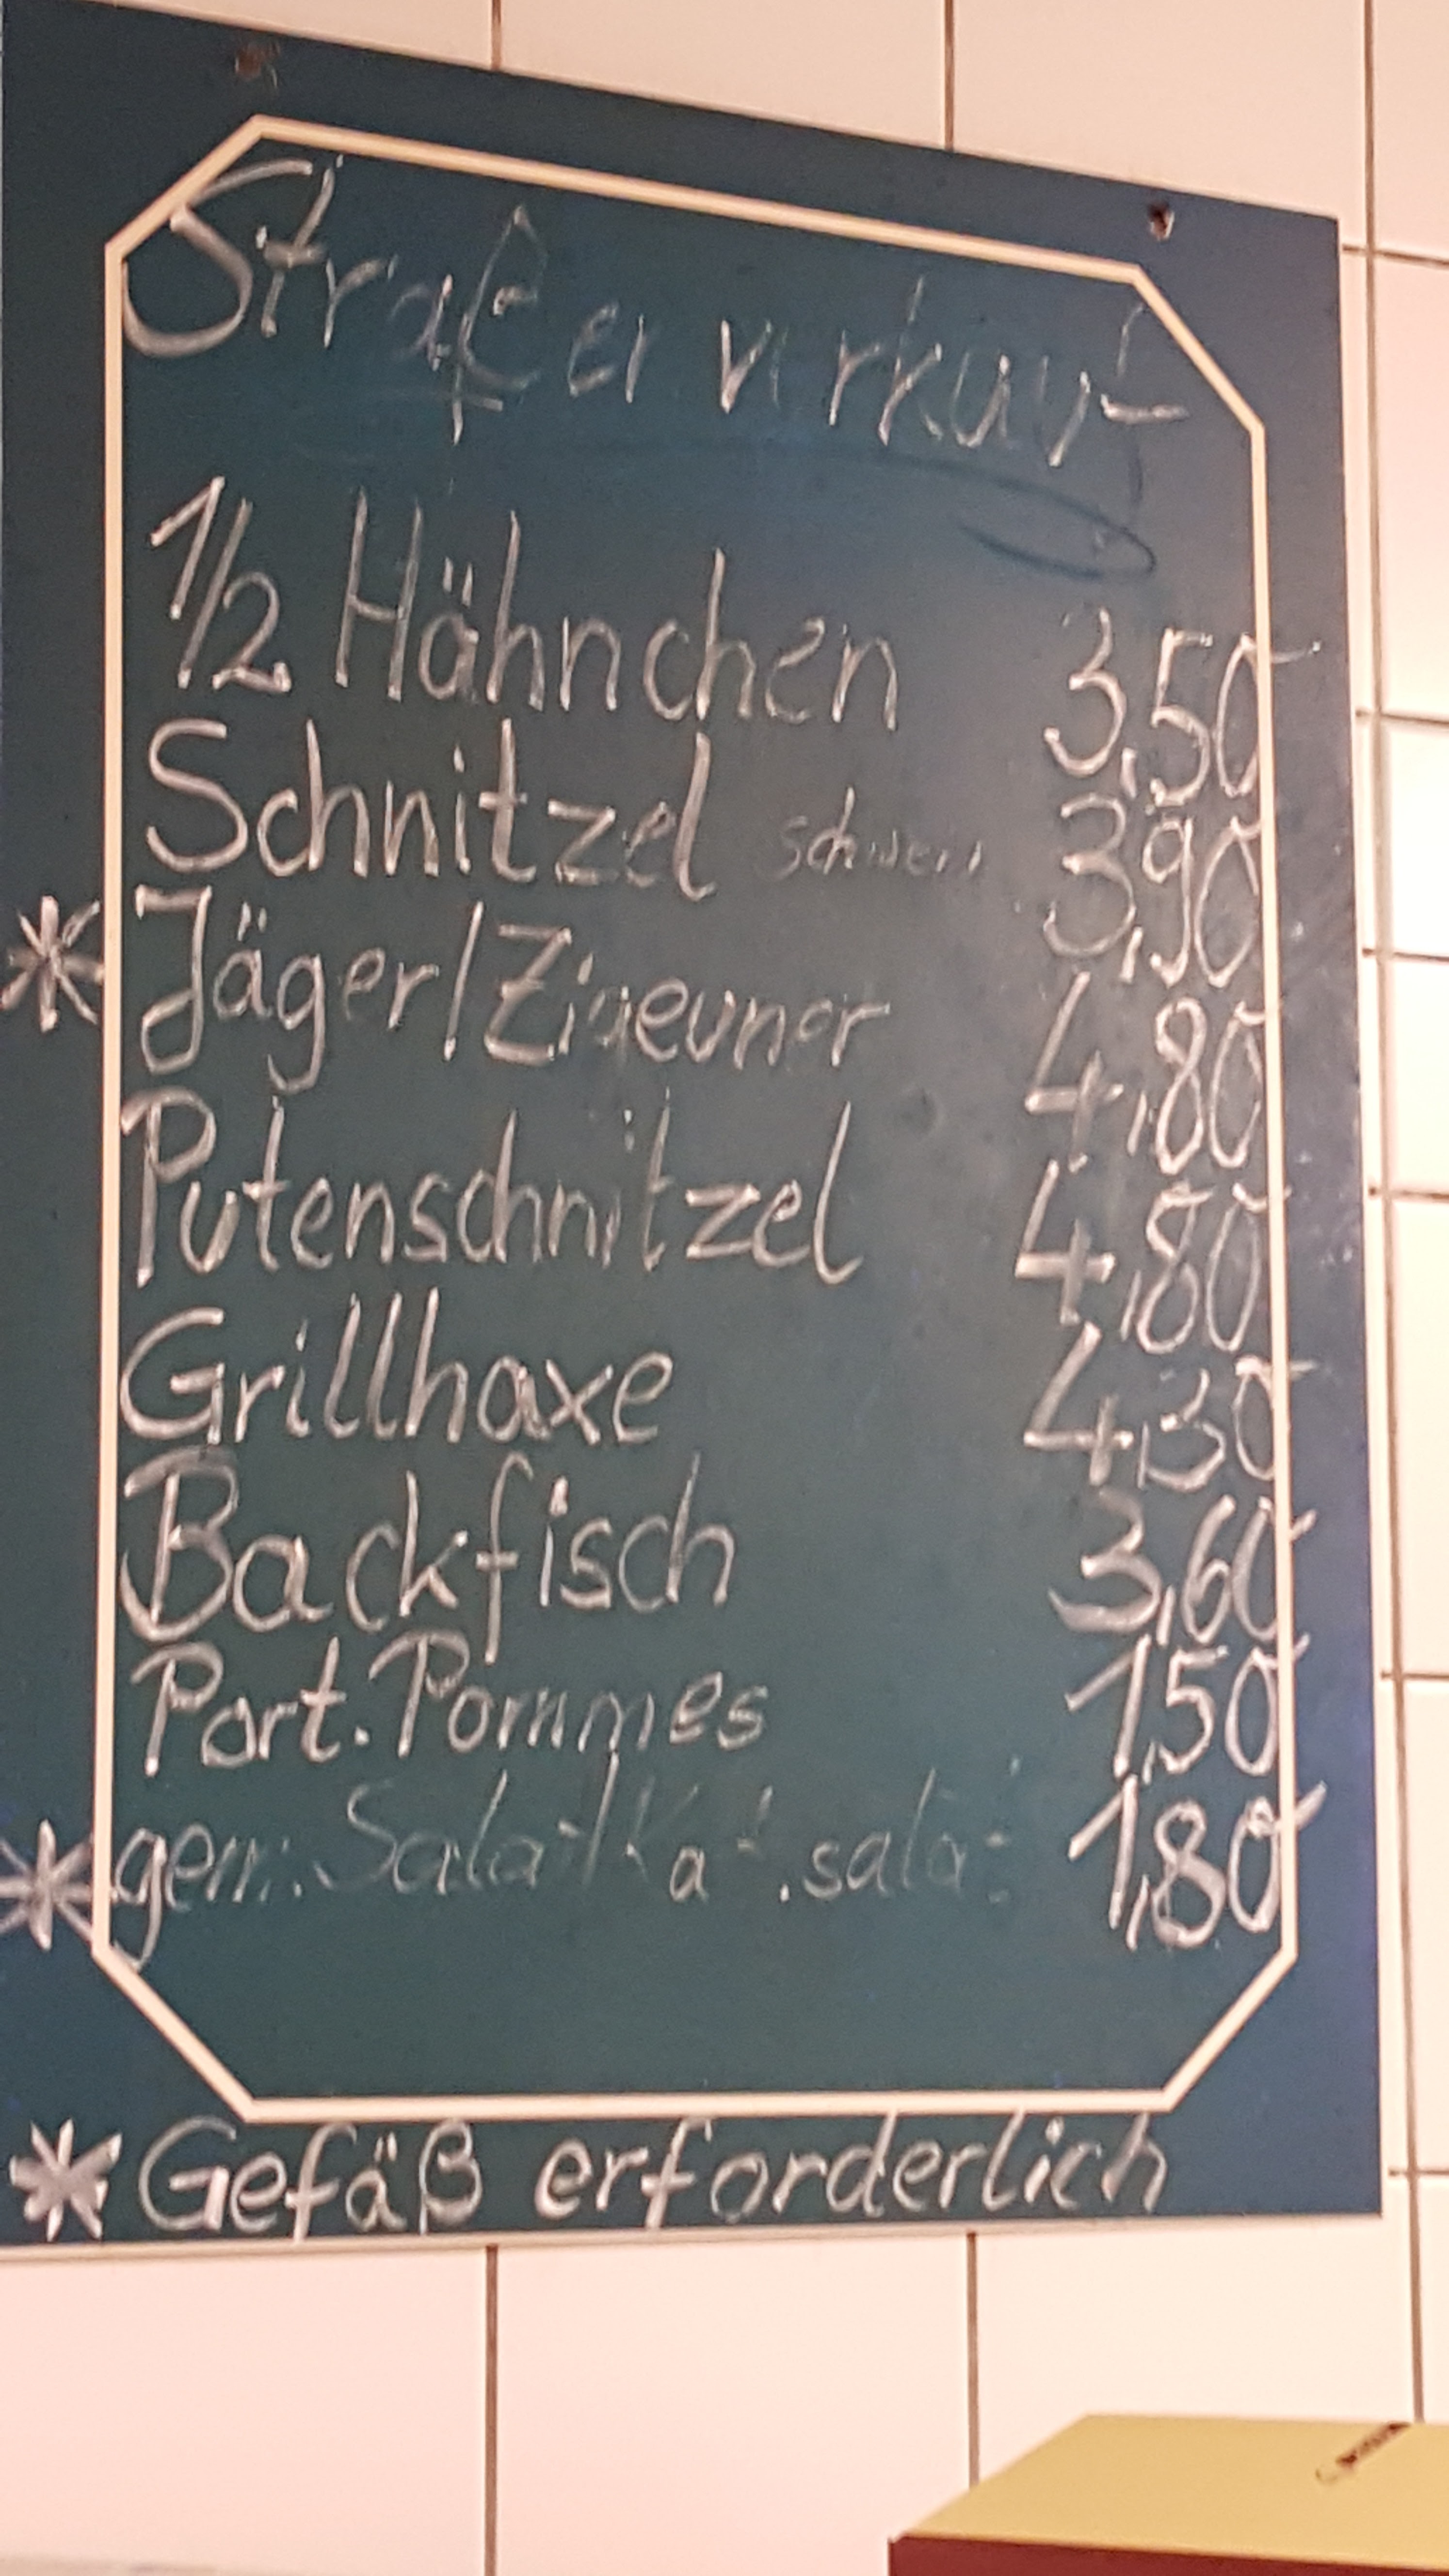 Straßenverkauf
1/2 Hähnchen 3,50
Schnitzel Schwein 3,90
* Jäger/Zigeuner 4,80
Putenschnitzel 4,80
Grillhaxe 4,30
Backfisch 3,60
Port. Pommes 1,50
* gem. Salat/Kart.salat 1,80
* Gefäß erforderlich